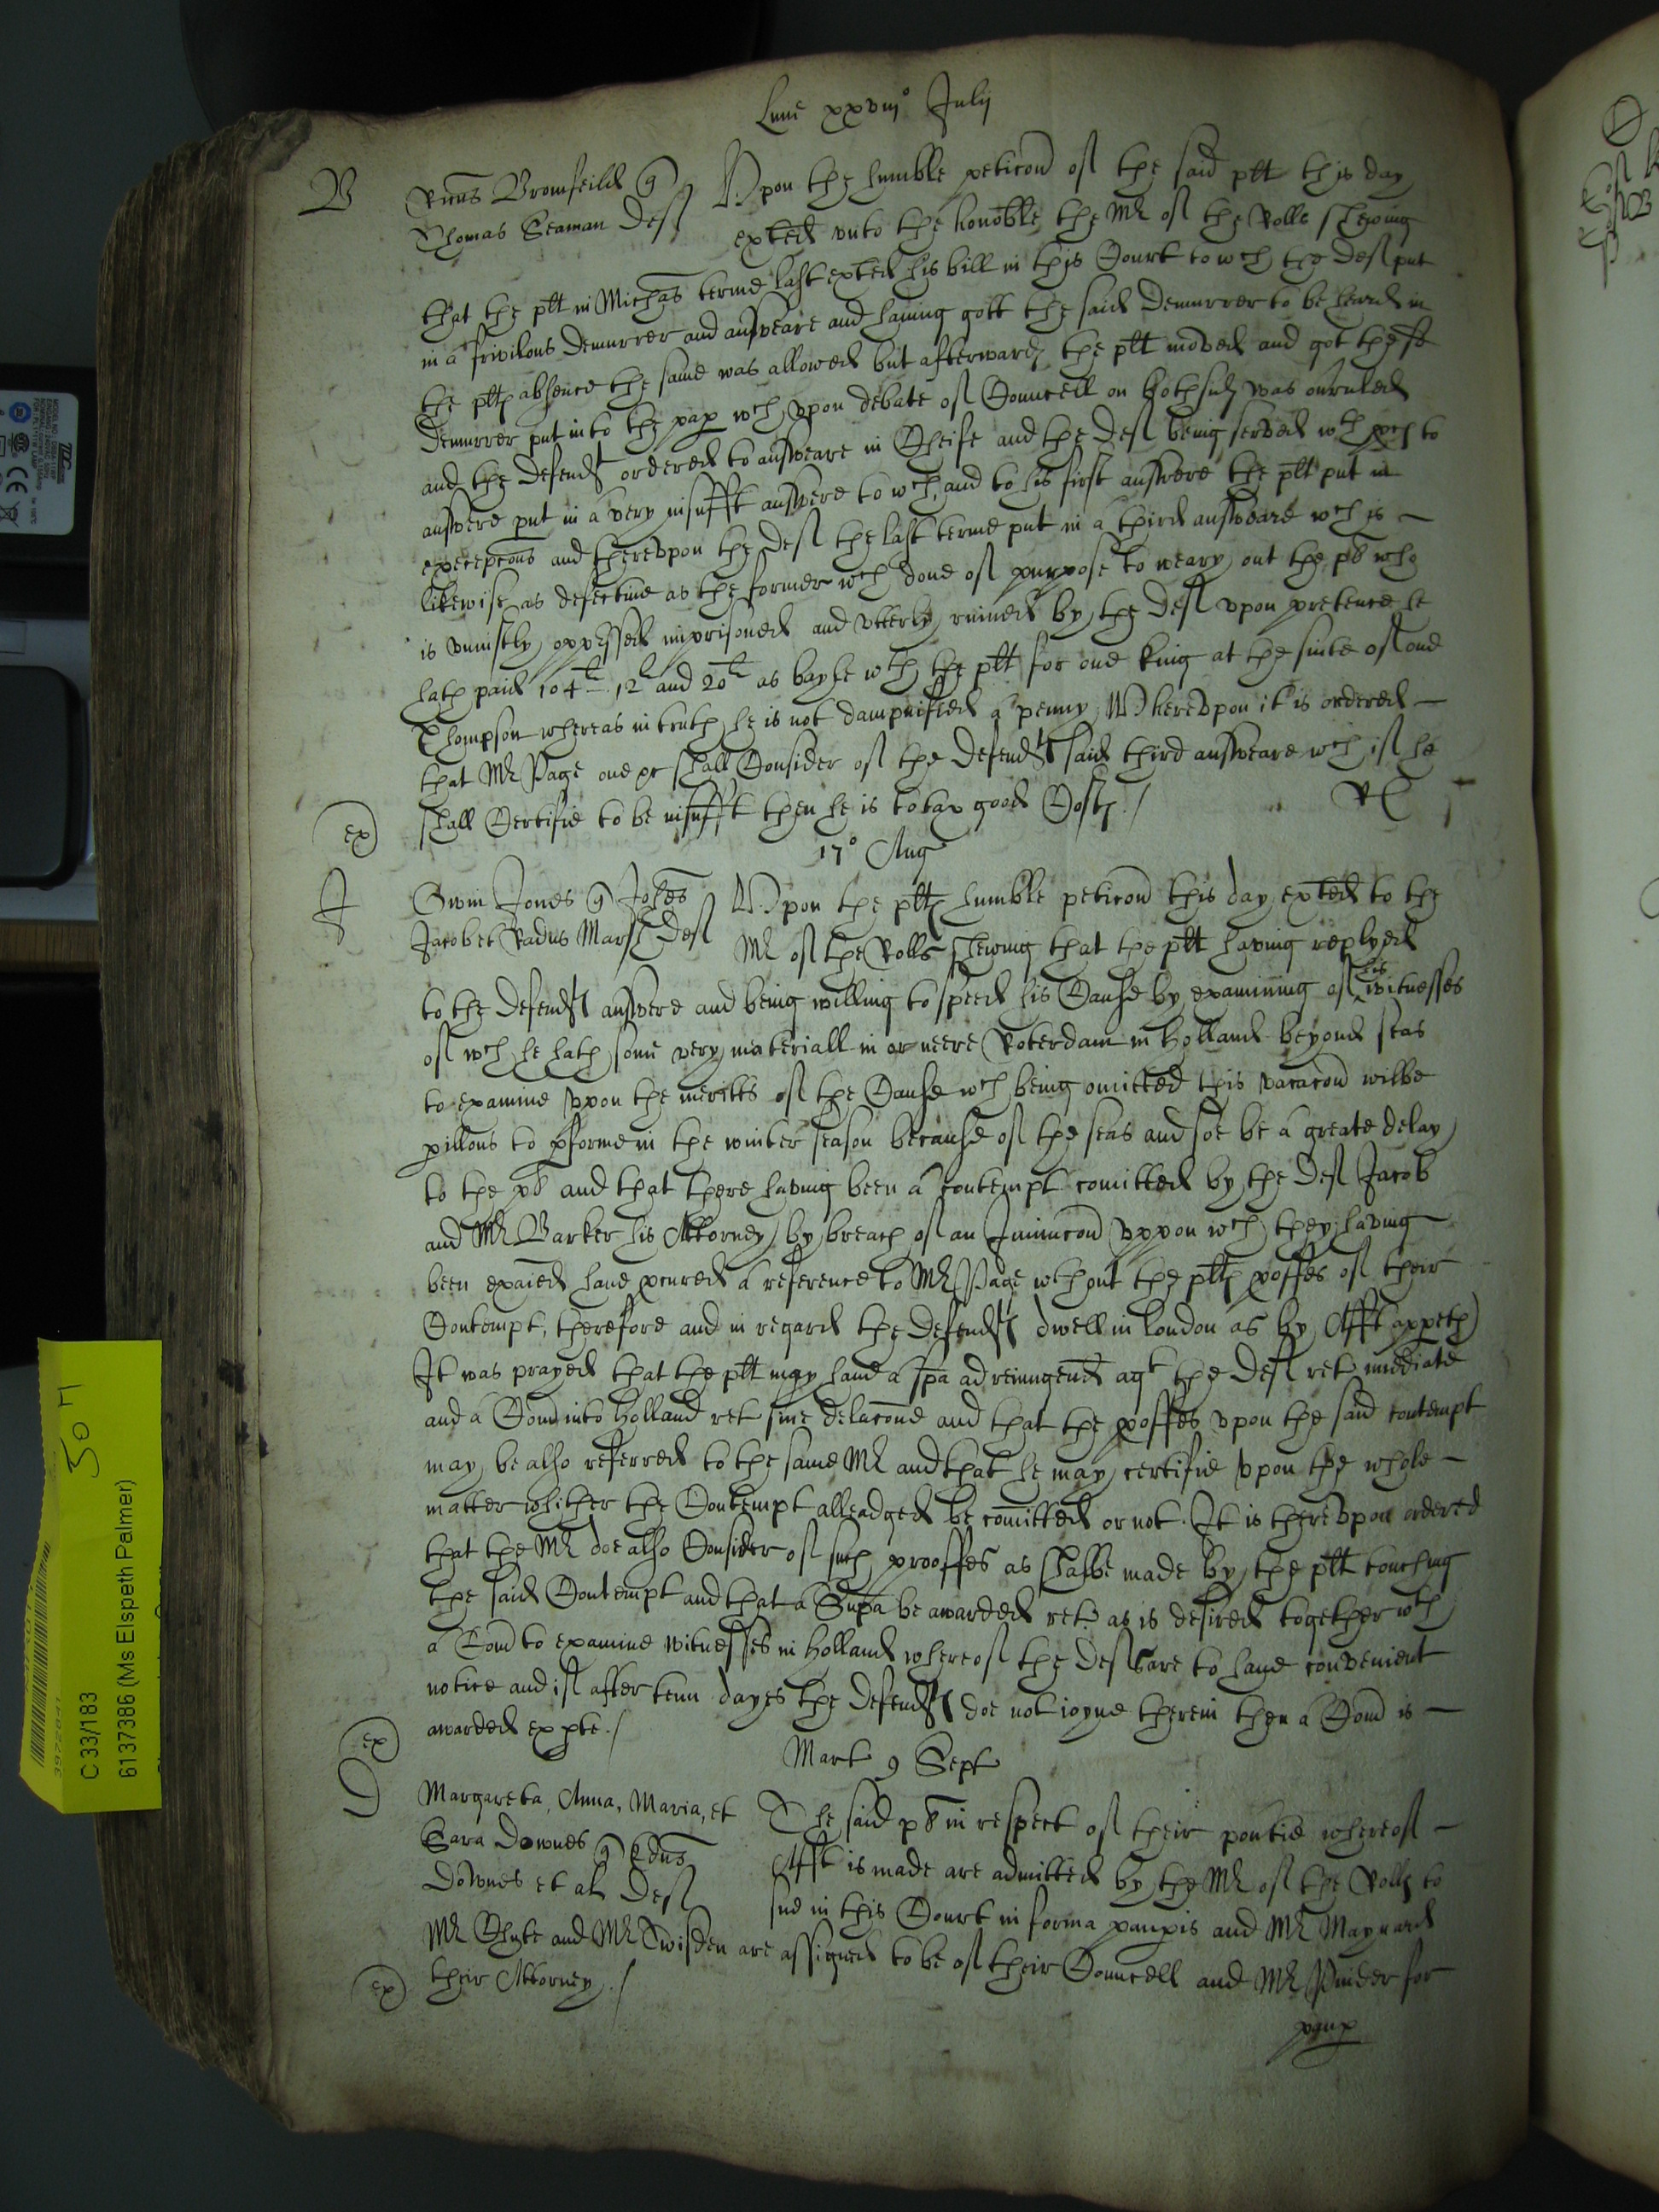 Lune xxviij° Julij
B
Ricus Bromfeild q
Thomas Seaman Def
Upon the humble peticon of the said plt this day
exted unto the honoble the Mr of the Rolls shewing
that the plt in Michas terme last exted his bill in this Court to wch the Def put
in a frivilous Demurrer and answeare and having gott the said Demurrer to be heard in
the plts absence the same was allowed but afterwards the plt moved and got the sd
Demurrer put into the pap wch upon debate of Councell on both sids was ouruled
and the Defendt ordered to answeare in Cheife and the Def being served wth pces to
answere put in a very insufft answere to wch and to his first answere the plt put in
excepcons and thereupon the Def the last terme put in a third answeare wch is
likewise as defective as the former wch done of purpose to weary out the pl who
is uniustly oppressed inprisoned and utterly ruined by the Def upon pretence he
hath paid 104l 12l and 20l as bayle wth the plt for one King at the suite of one
Thompson whereas in truth he is not dampnified a penny Whereupon it is ordered
that Mr Page one &c shall Consider of the Defendts said third answeare wch if he
shall Certifie to be insufft then he is to tax good Costs./
ex
17° Aug
J
Owin Jones q Johes
Jacob et Radus Marsh Def
Upon the plts humble peticon this day exted to the
Mr of the Rolls shewing that the plt having replyed
to the Defendts answere and being willing to speed his Cause by examining of his witnesses
of wch he hath some very materiall in or neere Roterdam in Holland beyond seas
to examine upon the meritts of the Cause wch being omitted this vacacon wilbe
pillous to pforme in the winter season because of the seas and soe be a greate delay
to the pl and that there having been a contempt comitted by the Def Jacob
and Mr Barker his Attorney by breach of an Iniuncon uppon wch they having
been exaied have pcured a reference to Mr Page wthout the plts proffes of their
Contempt, therefore and in regard the Defendts dwell in London as by Afft appeth
It was prayed that the plt may have a spa ad reiungend agt the Def ret imediate
and a Com into Holland ret sine dilacone and that the proffes upon the said contempt
may be also referred to the same Mr and that he may certifie upon the whole
matter whither the Contempt alleadged be comitted or not. It is thereupon ordered
that the Mr doe also Consider of such prooffes as shalbe made by the plt touching
the said Contempt and that a Supa be awarded ret as is desired together wth
a Com to examine witnesses in Holland whereof the Defts are to have convenient
notice and if after tenn dayes the Defendts doe not ioyne therein then a Com is
awarded ex pte./
ex
Mart 9 Sept
D
Margareta, Anna, Maria, et
Sara Downes q Edus
Downes et al Def
The said pl in respect of their poutie whereof
Afft is made are admitted by the Mr of the Rolls to
sue in this Court in forma paupis and Mr Maynard
Mr Chute and Mr Twisden are assigned to be of their Councell and Mr Pinder for
their Attorney./
ex
paup
C 33/183
6137386 (Ms Elspeth Palmer)